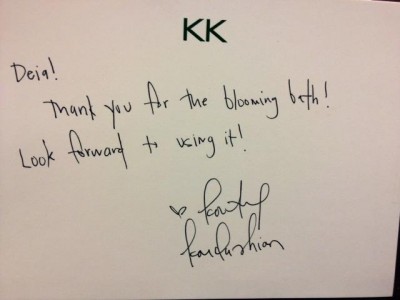 KK
Deia!
Thank you for the blooming bath!
Look forward to using it!
♡ Kourtney
Kardashian